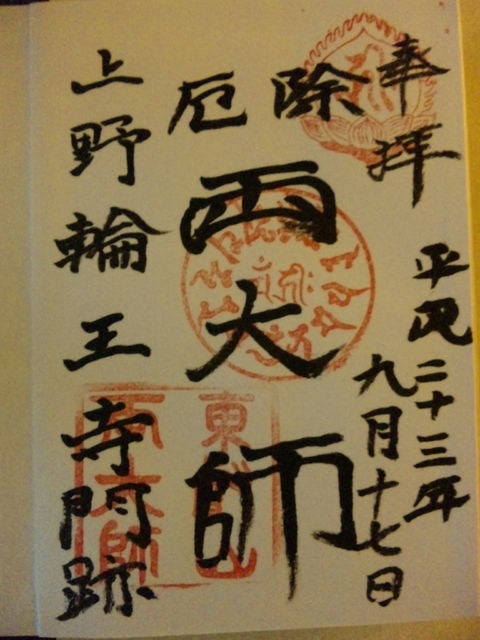 奉拝
平成二十三年
九月十七日
除厄
両大師
上野輪王寺門跡